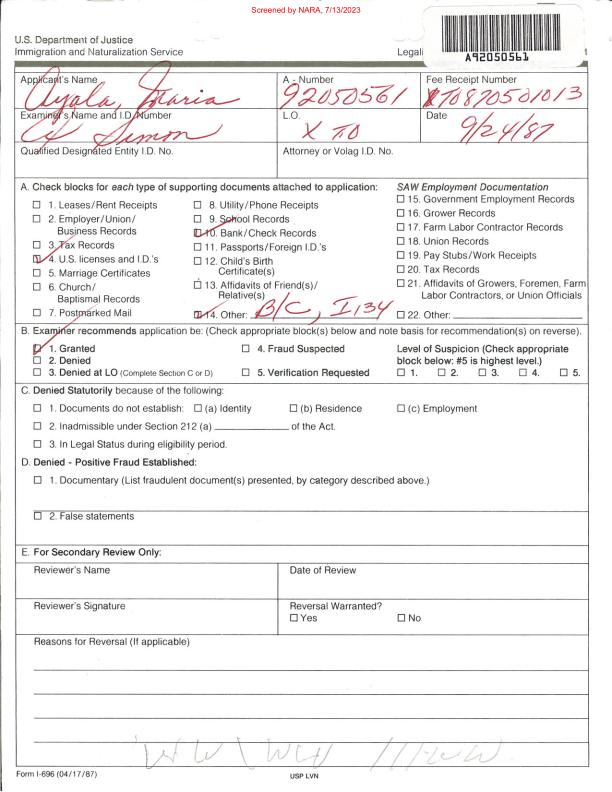 Screened by NARA, 7/13/2023
U.S. Department of Justice
Immigration and Naturalization Service
Legali
t
A92050561
Applicant's Name
Ayala, Maria
A - Number
92050561
Fee Receipt Number
870870501013
Examiner's Name and I.D. Number
Simon
L.O.
X TO
Date
9/24/87
Qualified Designated Entity I.D. No.
Attorney or Volag I.D. No.
A. Check blocks for each type of supporting documents attached to application:
1. Leases/Rent Receipts
2. Employer/Union/
Business Records
3. Tax Records
4. U.S. licenses and I.D.'s
5. Marriage Certificates
6. Church/
Baptismal Records
7. Postmarked Mail
8. Utility/Phone Receipts
9. School Records
10. Bank/Check Records
11. Passports/Foreign I.D.'s
12. Child's Birth
Certificate(s)
13. Affidavits of Friend(s)/
Relative(s)
14. Other: B/C, I,134
SAW Employment Documentation
15. Government Employment Records
16. Grower Records
17. Farm Labor Contractor Records
18. Union Records
19. Pay Stubs/Work Receipts
20. Tax Records
21. Affidavits of Growers, Foremen, Farm
Labor Contractors, or Union Officials
22. Other:
B. Examiner recommends application be: (Check appropriate block(s) below and note basis for recommendation(s) on reverse).
1. Granted
2. Denied
3. Denied at LO (Complete Section C or D)
4. Fraud Suspected
5. Verification Requested
Level of Suspicion (Check appropriate
block below: #5 is highest level.)
1. 2. 3. 4. 5.
C. Denied Statutorily because of the following:
1. Documents do not establish: (a) Identity (b) Residence (c) Employment
2. Inadmissible under Section 212 (a) of the Act.
3. In Legal Status during eligibility period.
D. Denied - Positive Fraud Established:
1. Documentary (List fraudulent document(s) presented, by category described above.)
2. False statements
E. For Secondary Review Only:
Reviewer's Name
Date of Review
Reviewer's Signature
Reversal Warranted?
Yes No
Reasons for Reversal (If applicable)
Form I-696 (04/17/87)
USP LVN